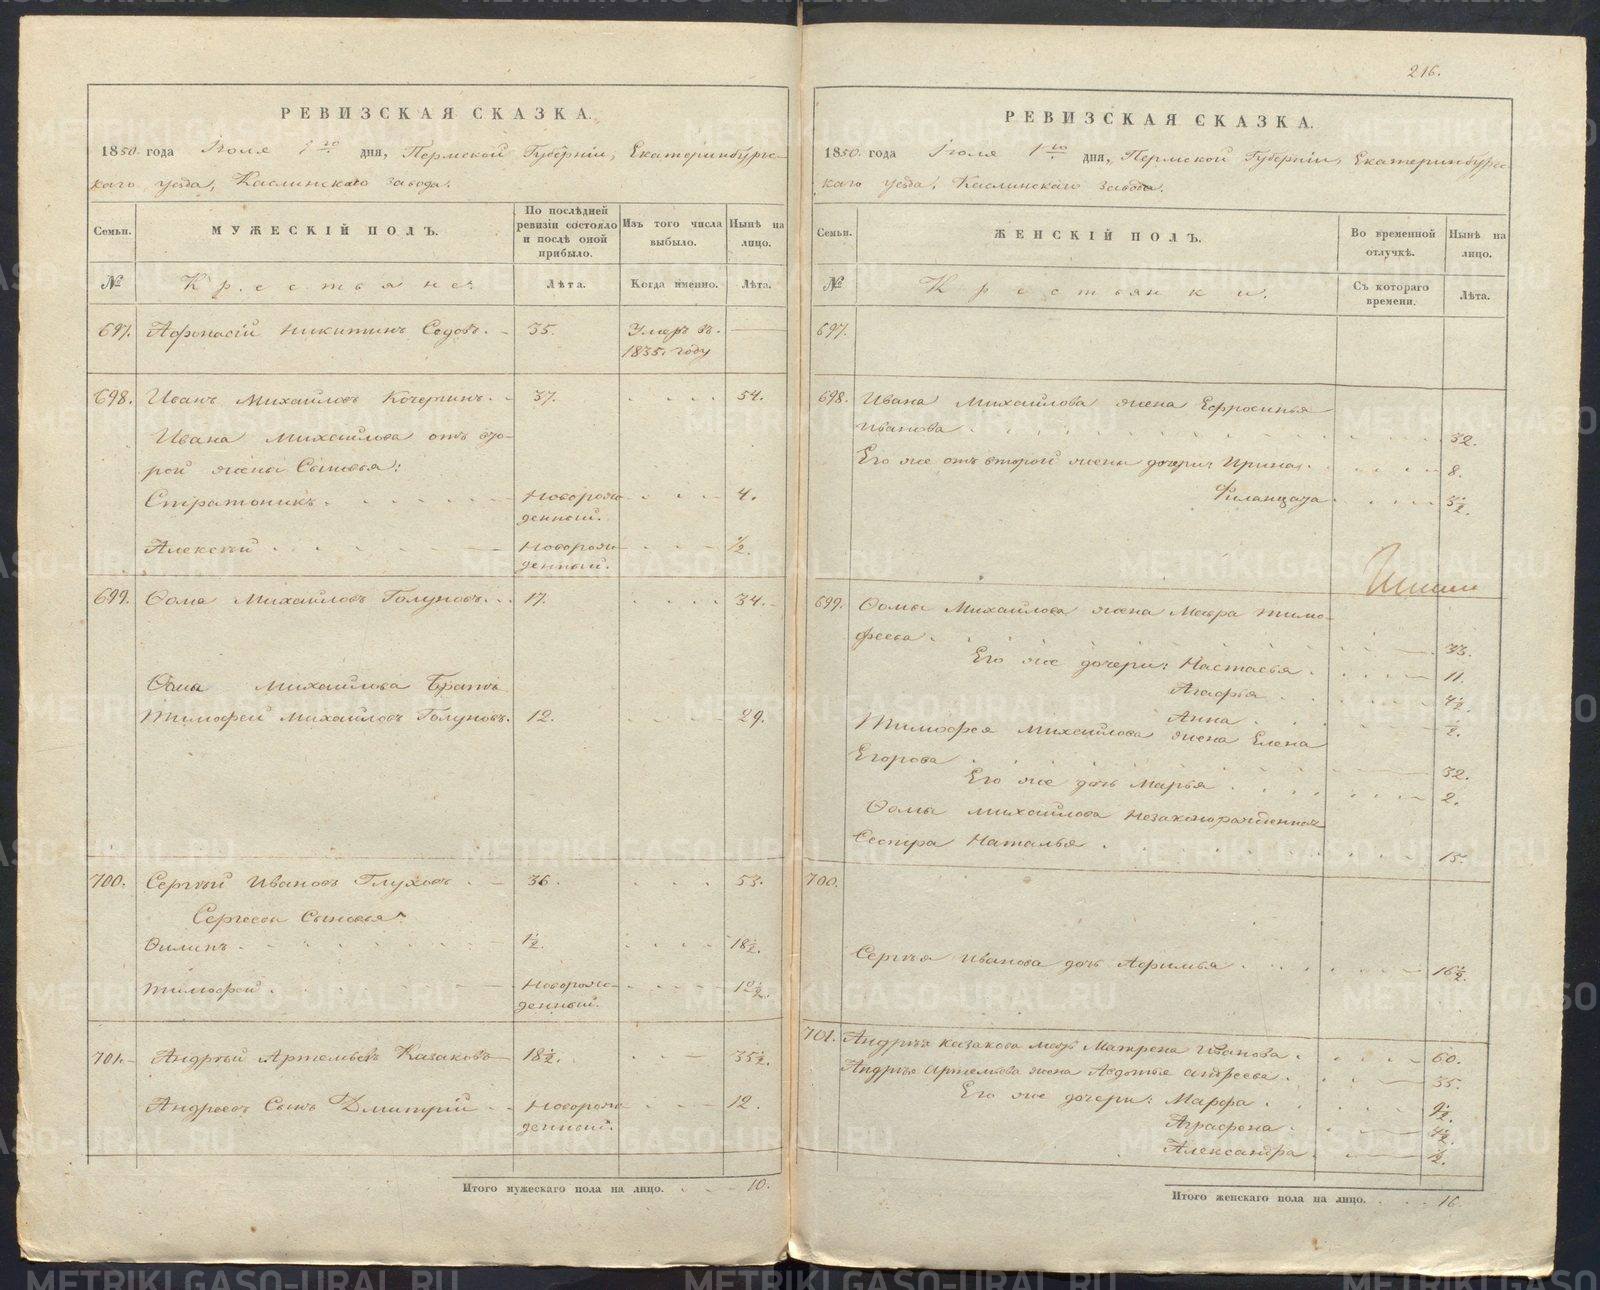 216.
РЕВИЗСКАЯ СКАЗКА.
1850. года Июля 1го дня, Пермской Губерніи, Екатеринбургс-
каго уезда, Каслинскаго завода.
Семьи.
МУЖЕСКІЙ ПОЛЪ.
По послѣдней ревизіи состояло и послѣ оной прибыло.
Изъ того числа выбыло.
Нынѣ на лицо.
№
Крестьяне:
Лѣта.
Когда именно.
Лѣта.
697. Афонасій Никитинъ Седовъ. 35. Умеръ въ
1835. году
698. Иванъ Михайловъ Кочеринъ. 37. 54.
Ивана Михайлова отъ вто-
рой жены Сыновья:
Стратоникъ. Новорож- 4.
денный.
Алексѣй Новорож- 1/2.
денный.
699. Ѳома Михайловъ Голуновъ. 17. 34.
Ѳомы Михайлова Братъ
Тимофей Михайловъ Голуновъ. 12. 29.
700. Сергѣй Ивановъ Глуховъ. 36. 53.
Сергеевы Сыновья:
Филипъ 1 1/2. 18 1/2.
Тимофей. Новорож- 10 1/2.
денный.
701. Андрѣй Артемьевъ Казаковъ 18 1/2. 35 1/2.
Андреевъ Сынъ Дмитрій Новорож- 12.
денный.
Итого мужескаго пола на лицо. 10.
РЕВИЗСКАЯ СКАЗКА.
1850. года Июля 1го дня, Пермской Губерніи, Екатеринбургс-
каго уезда, Каслинскаго завода.
Семьи.
ЖЕНСКІЙ ПОЛЪ.
Во временной отлучкѣ.
Нынѣ на лицо.
№
Крестьянки.
Съ котораго времени.
Лѣта.
697.
698. Ивана Михайлова жена Ефросинья
Иванова 32.
Его же отъ второй жены дочери: Ирина. 8.
3 1/2.
699. Ѳомы Михайлова жена Мавра Тимо-
феева. 33.
Его же дочери: Настасья. 11.
Агафья 4 1/2.
Анна 1/2.
Тимофея Михайлова жена Елена
Егорова 32.
Его же дочь Марья 2.
Ѳомы Михайлова Незаконорожденная
Сестра Наталья 15.
700.
Сергѣя Иванова дочь Афимья 16 1/2.
701. Андрѣя Казакова мать Матрена Иванова. 60.
Андрѣя Артемьева жена Авдотья Андреева. 35.
Его же дочери: Марфа. 9 1/2.
Аграфена. 4 1/2.
Александра 1/2.
Итого женскаго пола на лицо. 16.
METRIKI.GASO-URAL.RU